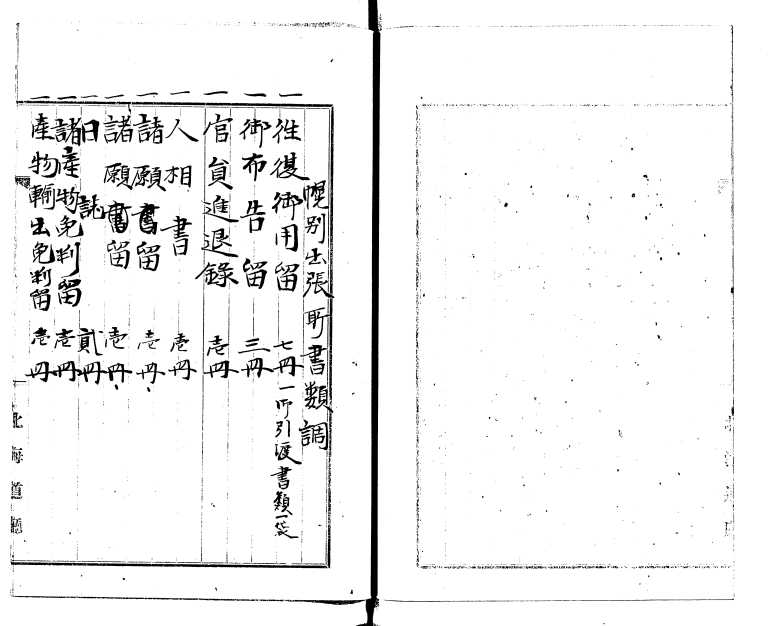 幌別出張所書類調
一 往復御用留 七冊 一所引渡書類一袋
一 御布告留 三冊
一 官員進退録 壱冊
一 人相書 壱冊
一 諸願書留 壱冊
一 諸願書留 壱冊
一 日誌 貳冊
一 諸産物免判留 壱冊
一 産物輸出免判留 壱冊
北海道廳